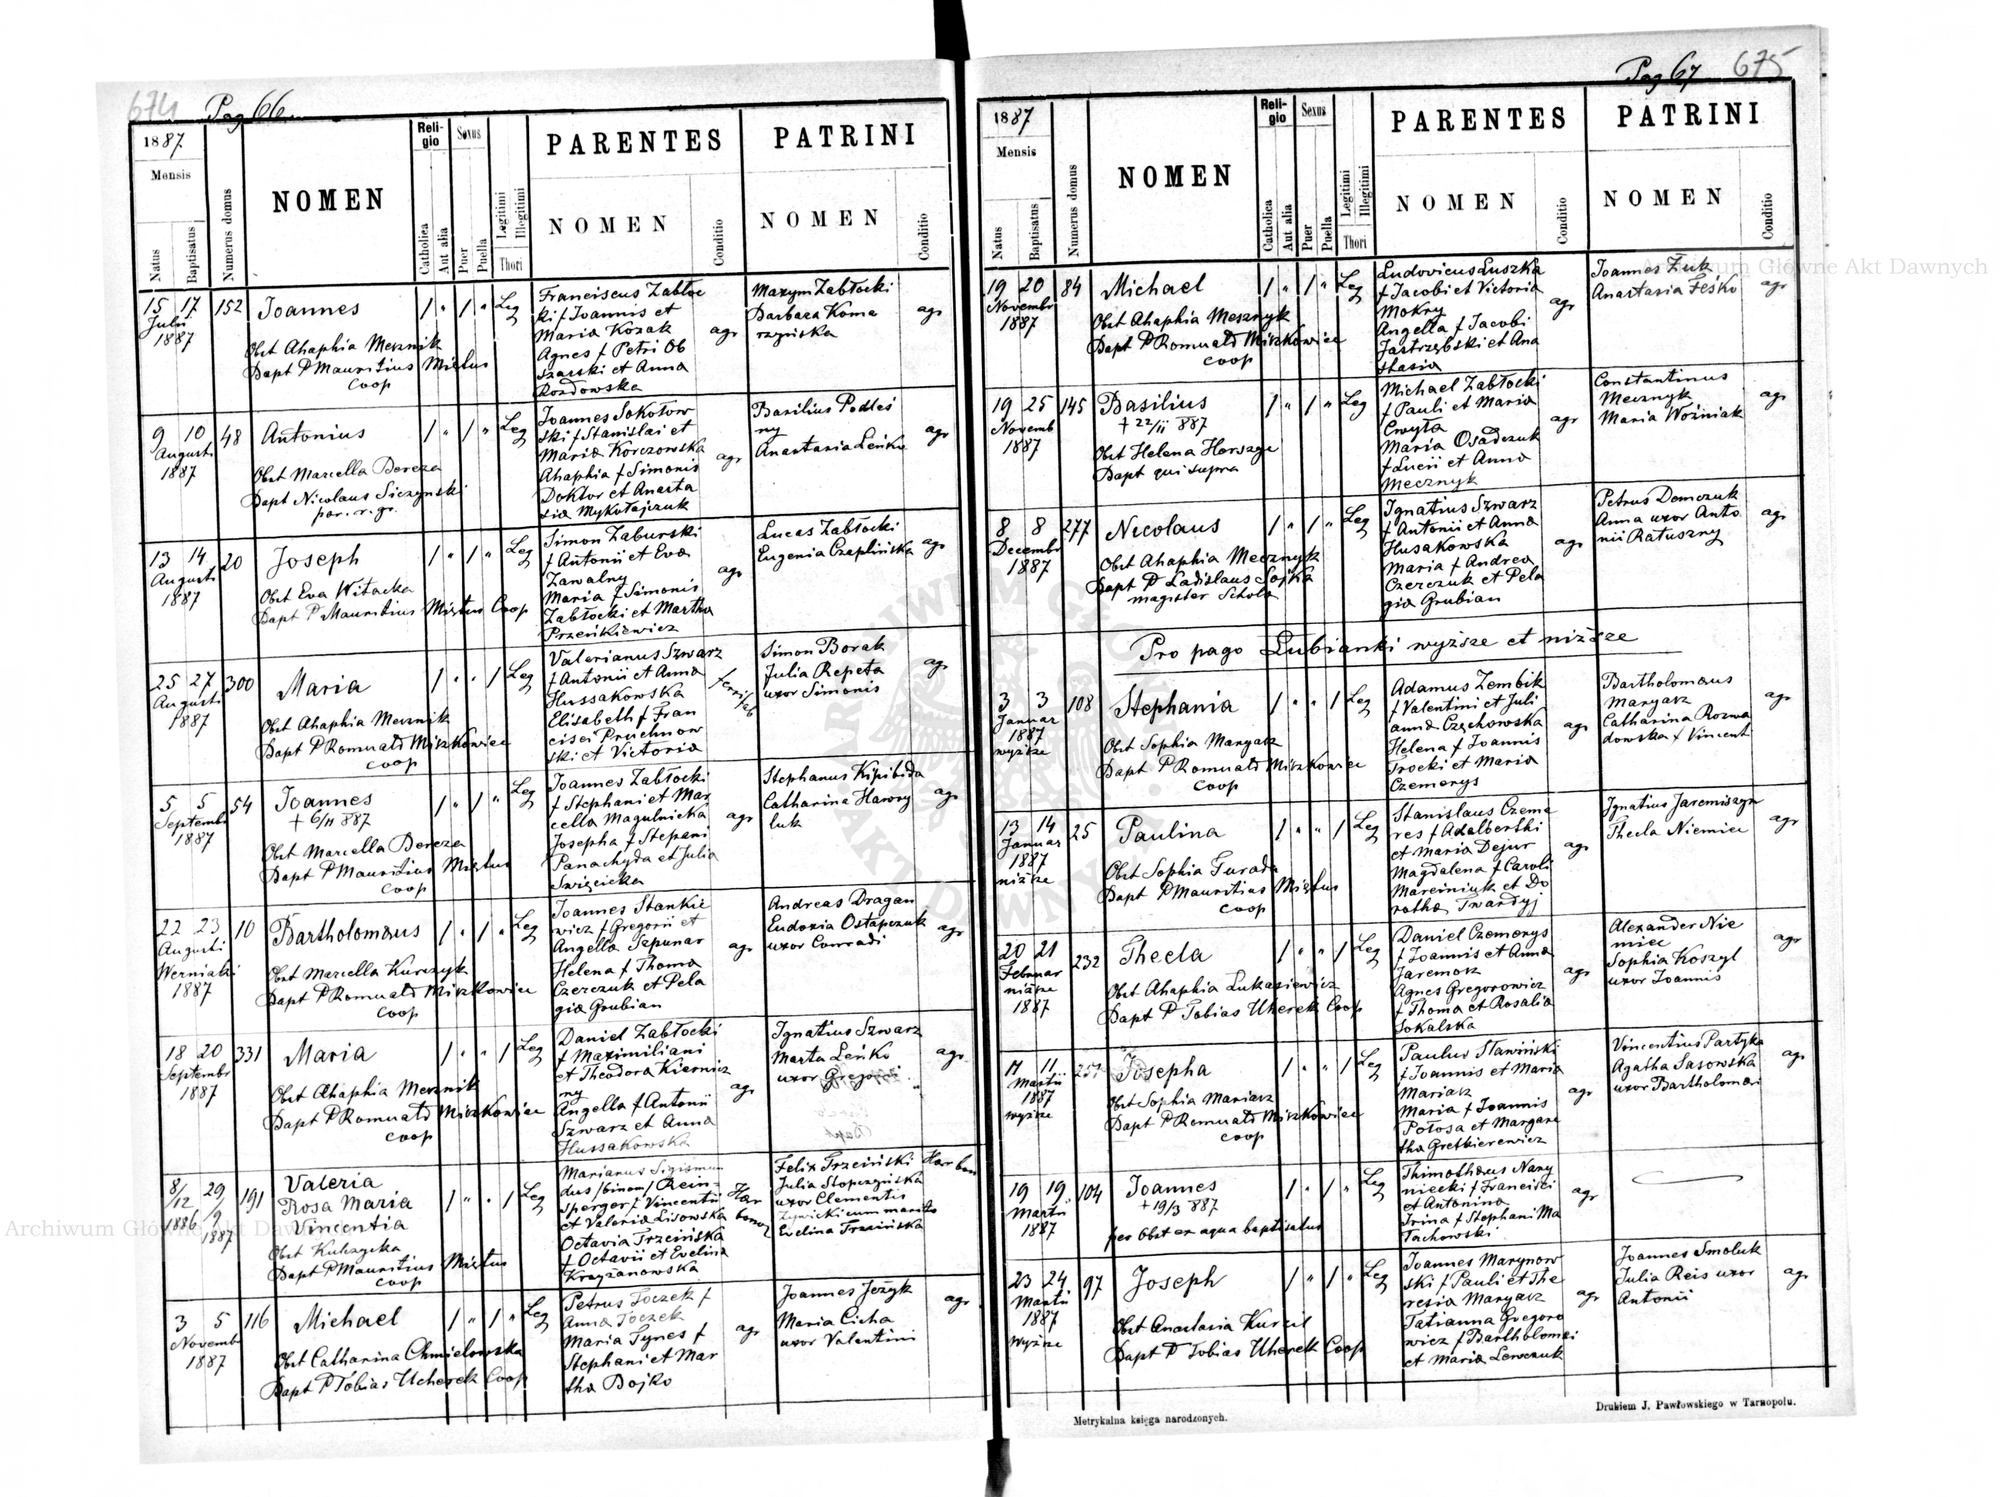 674 Pag 66
1887
Mensis
Natus
Baptisatus
Numerus domus
NOMEN
Religio
Catholica
Aut alia
Sexus
Puer
Puella
Legitimi
Illegitimi
Thori
PARENTES
NOMEN
Conditio
PATRINI
NOMEN
Conditio
15 17 152 Joannes / " / " Leg
Julii
1887
Obst Ahaphia Mecznik
Bapt P Mauritius Mixtus
coop
Franciscus Zabłoc
ki f Joannis et
Maria Kozak
Agnes f Petri Ob
szarski et Anna
Rozdowska
agr
Maxym Zabłocki
Barbara Koma
rzyńska
agr
9 10 48 Antonius / " / " Leg
Augusti
1887
Obst Marcella Bereza
Bapt Nicolaus Siczynski
par. r. gr.
Joannes Sokołow
ski f Stanislai et
Maria Korczowska
Ahaphia f Simonis
Doktor et Anasta
sia Mykołajczuk
agr
Basilius Podleś
ny
Anastasia Leńko
agr
13 14 20 Joseph / " / " Leg
Augusti
1887
Obst Eva Witacka
Bapt P Mauritius Mixtus Coop
Simon Zaburski
f Antonii et Eva
Zawalny
Maria f Simonis
Zabłocki et Martha
Przeńkiewicz
agr
Lucas Zabłocki
Eugenia Czaplińska
agr
25 27 300 Maria / " " / Leg
Augusti
1887
Obst Ahaphia Mecznik
Bapt P Romuald Miszkowicz
coop
Valerianus Szwarz
f Antonii et Anna
Hussakowska
Elisabeth f Fran
cisci Pruchnow
ski et Victoria
Simon Borak
Julia Repeta
uxor Simonis
agr
5 5 54 Joannes / " / " Leg
Septembr
1887
+ 6/11 887
Obst Marcella Bereza
Bapt P Mauritius Mixtus
coop
Joannes Zabłocki
f Stephani et Mar
cella Magulnicka
Josepha f Stepani
Panachyda et Julia
Swięcicka
agr
Stephanus Kipibida
Catharina Hawry
luk
agr
22 23 10 Bartholomæus / " / " Leg
Augusti
Werniaki
1887
Obst Marcella Kurczyk
Bapt P Romuald Miszkowicz
coop
Joannes Stankie
wicz f Gregorii et
Angella Szpunar
Helena f Thoma
Czerczuk et Pela
gia Grubian
agr
Andreas Dragan
Eudoxia Ostapczuk
uxor Conradi
agr
18 20 331 Maria / " " / Leg
Septembr
1887
Obst Ahaphia Mecznik
Bapt P Romuald Miszkowicz
coop
Daniel Zabłocki
f Maximiliani
et Theodora Kiernicz
ny
Angella f Antonii
Szwarz et Anna
Hussakowska
agr
Ignatius Szwarz
Marta Leńko
uxor Gregorii
agr
8/12 29/9 191 Valeria / " " / Leg
1886 1887
Rosa Maria
Vincentia
Obst Kulczycka
Bapt P Mauritius Mixtus
coop
Marianus Sigismun
dus /binom/ Rein-
sperger f Vincentii
et Valeria Lisowska
Octavia Trzcińska
f Octavii et Evelina
Krzyżanowska
Felix Trzciński
Julia Stopczyńska
uxor Clementis
Żywicki cum marito
Evelina Trzcińska
3 5 116 Michael / " / " Leg
Novembr
1887
Obst Catharina Chmielowska
Bapt P Tobias Ucherek Coop
Petrus Toczek f
Anna Toczek
Maria Tynes f
Stephani et Mar
tha Bojko
agr
Joannes Jeżyk
Maria Cicha
uxor Valentini
agr
Pag 67 675
1887
Mensis
Natus
Baptisatus
Numerus domus
NOMEN
Religio
Catholica
Aut alia
Sexus
Puer
Puella
Legitimi
Illegitimi
Thori
PARENTES
NOMEN
Conditio
PATRINI
NOMEN
Conditio
19 20 84 Michael / " / " Leg
Novembr
1887
Obst Ahaphia Mesznyk
Bapt P Romuald Miszkowicz
coop
Ludovicus Luszka
f Jacobi et Victoria
Mokry
Angella f Jacobi
Jastrzębski et Ana
stasia
agr
Joannes Żuk
Anastasia Feśko
agr
19 25 145 Basilius / " / " Leg
Novemb
1887
+ 22/11 887
Obst Helena Horszge
Bapt qui supra
Michael Zabłocki
f Pauli et Maria
Cwyta
Maria Osadczuk
f Lucii et Anna
Mecznyk
agr
Constantinus
Mecznyk
Maria Woźniak
agr
8 8 277 Nicolaus / " / " Leg
Decembr
1887
Obst Ahaphia Mecznyk
Bapt P Ladislaus Sojka
magister Schola
Ignatius Szwarz
f Antonii et Anna
Husakowska
Maria f Andrea
Czerczuk et Pela
gia Grubian
agr
Petrus Demczuk
Anna uxor Anto
nii Ratuszny
agr
Pro pago Lubianki wyższe et niższe
3 3 108 Stephania / " " / Leg
Januar
1887
wyższe
Obst Sophia Maryarz
Bapt P Romuald Miszkowicz
coop
Adamus Zembik
f Valentini et Juli
anna Częchowska
Helena f Joannis
Trocki et Maria
Czemerys
agr
Bartholomæus
Maryarz
Catharina Rozwa
dowska f Vincent
agr
13 14 25 Paulina / " " / Leg
Januar
1887
niższe
Obst Sophia Gurada
Bapt P Mauritius Mixtus
coop
Stanislaus Czeme
res f Adalberski
et Maria Dejur
Magdalena f Caroli
Marciniuk et Do
rotha Twardyj
agr
Ignatius Jaremiszyn
Thecla Niemiec
agr
20 21 232 Thecla / " " / Leg
Februar
niższe
1887
Obst Ahaphia Lukasiewicz
Bapt P Tobias Uherek Coop
Daniel Czemerys
f Joannis et Anna
Jaremoz
Agnes Gregorowicz
f Thoma et Rosalia
Sokalska
agr
Alexander Nie
miec
Sophia Koszyl
uxor Joannis
agr
11 11 257 Josepha / " " / Leg
Martii
1887
wyższe
Obst Sophia Mariarz
Bapt P Romuald Miszkowicz
coop
Paulus Stawiński
f Joannis et Maria
Mariarz
Maria f Joannis
Potosa et Margare
tha Gretkierewicz
agr
Vincentius Partyka
Agatha Sasowska
uxor Bartholomæi
agr
19 19 104 Joannes / " / " Leg
Martii
1887
+ 19/3 887
per Obst ex aqua baptisatus
Thimothæus Nary
niecki f Francisci
et Antonina
Irina f Stephani Ma
tachowski
agr
23 24 97 Joseph / " / " Leg
Martii
1887
wyższe
Obst Anastasia Kurcil
Bapt P Tobias Uherek Coop
Joannes Marynow
ski f Pauli et The
resia Maryarz
Tatianna Gregoro
wicz f Bartholomæi
et Maria Lewczuk
agr
Joannes Smoluk
Julia Reis uxor
Antonii
agr
Metrykalna księga narodzonych.
Drukiem J. Pawłowskiego w Tarnopolu.
Archiwum Główne Akt Dawnych
Archiwum Główne Akt Dawnych
ARCHIWUM GŁÓWNE AKT DAWNYCH